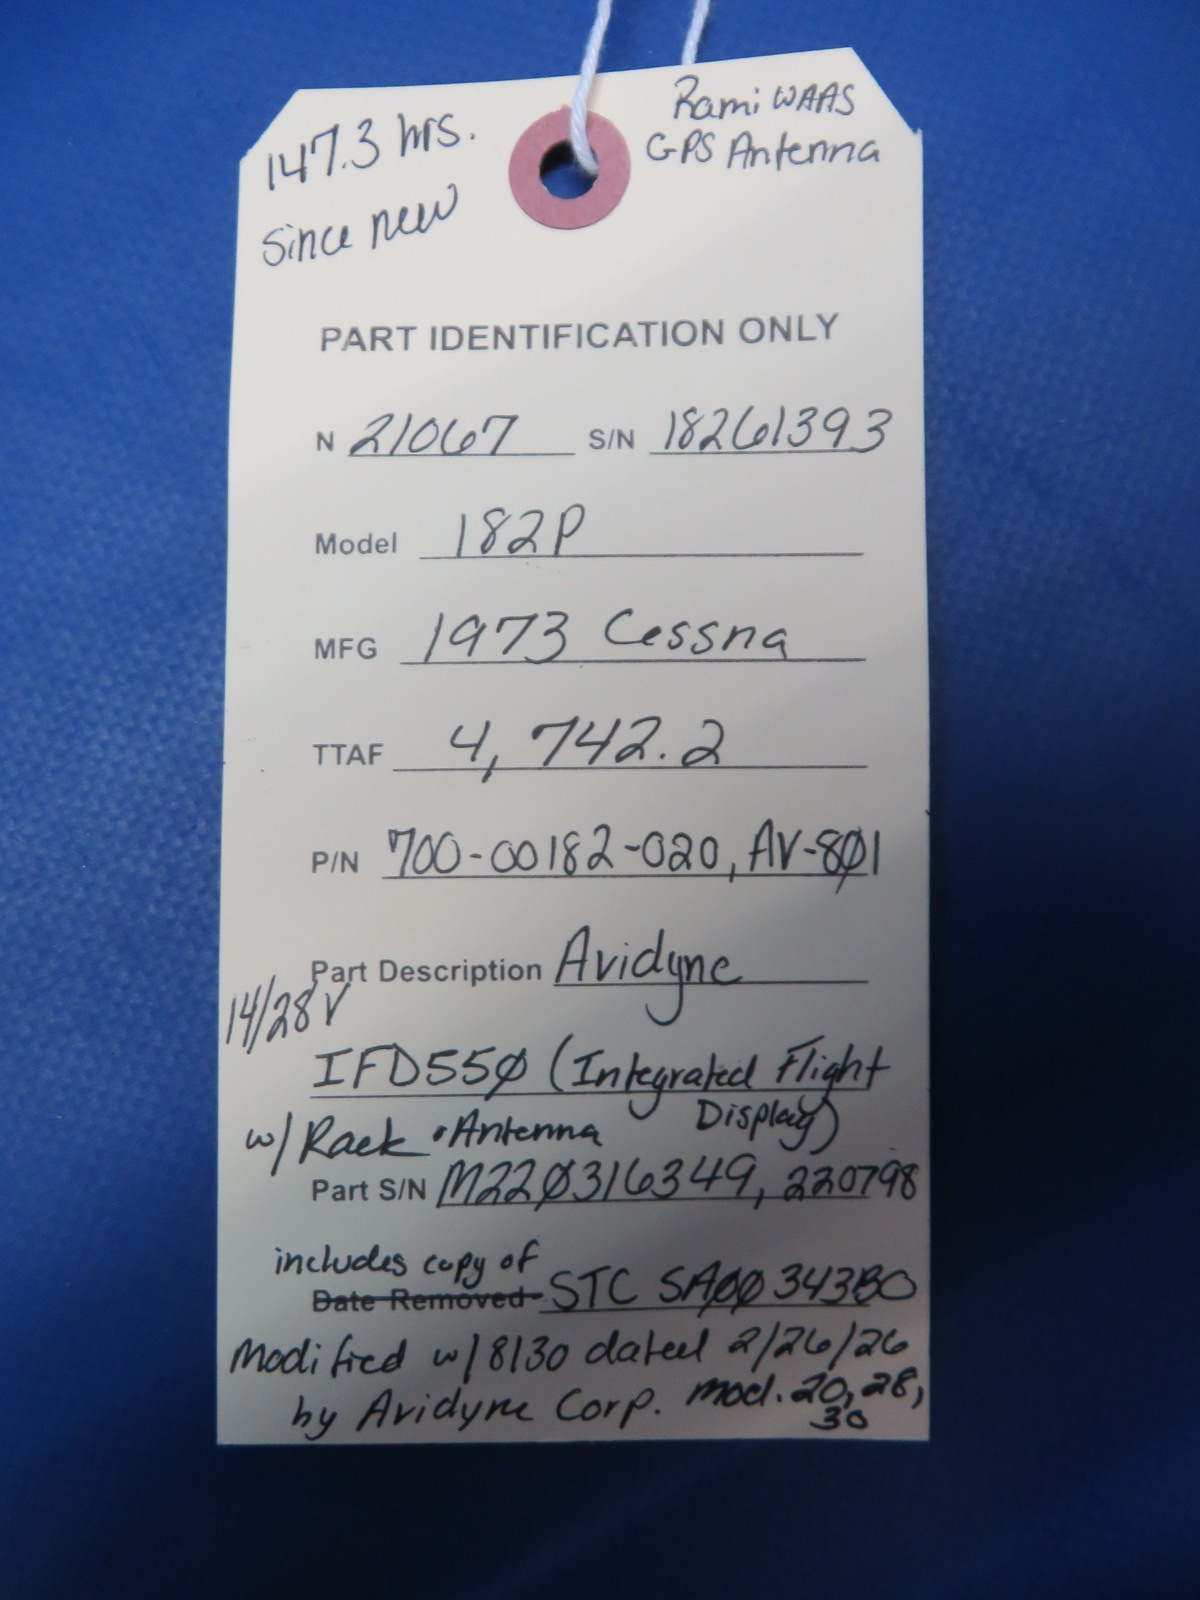 147.3 hrs.
since new
Rami WAAS
GPS Antenna
PART IDENTIFICATION ONLY
N 21067 S/N 18261393
Model 182P
MFG 1973 Cessna
TTAF 4,742.2
P/N 700-00182-020, AV-8Ø1
Part Description Avidyne
14/28 V
IFD55Ø (Integrated Flight
Display)
w/ Rack • Antenna
Part S/N M22Ø316349, 220798
includes copy of
Date Removed STC SAØØ343BO
Modified w/ 8130 dated 2/26/26
by Avidyne Corp. mod. 20, 28,
30